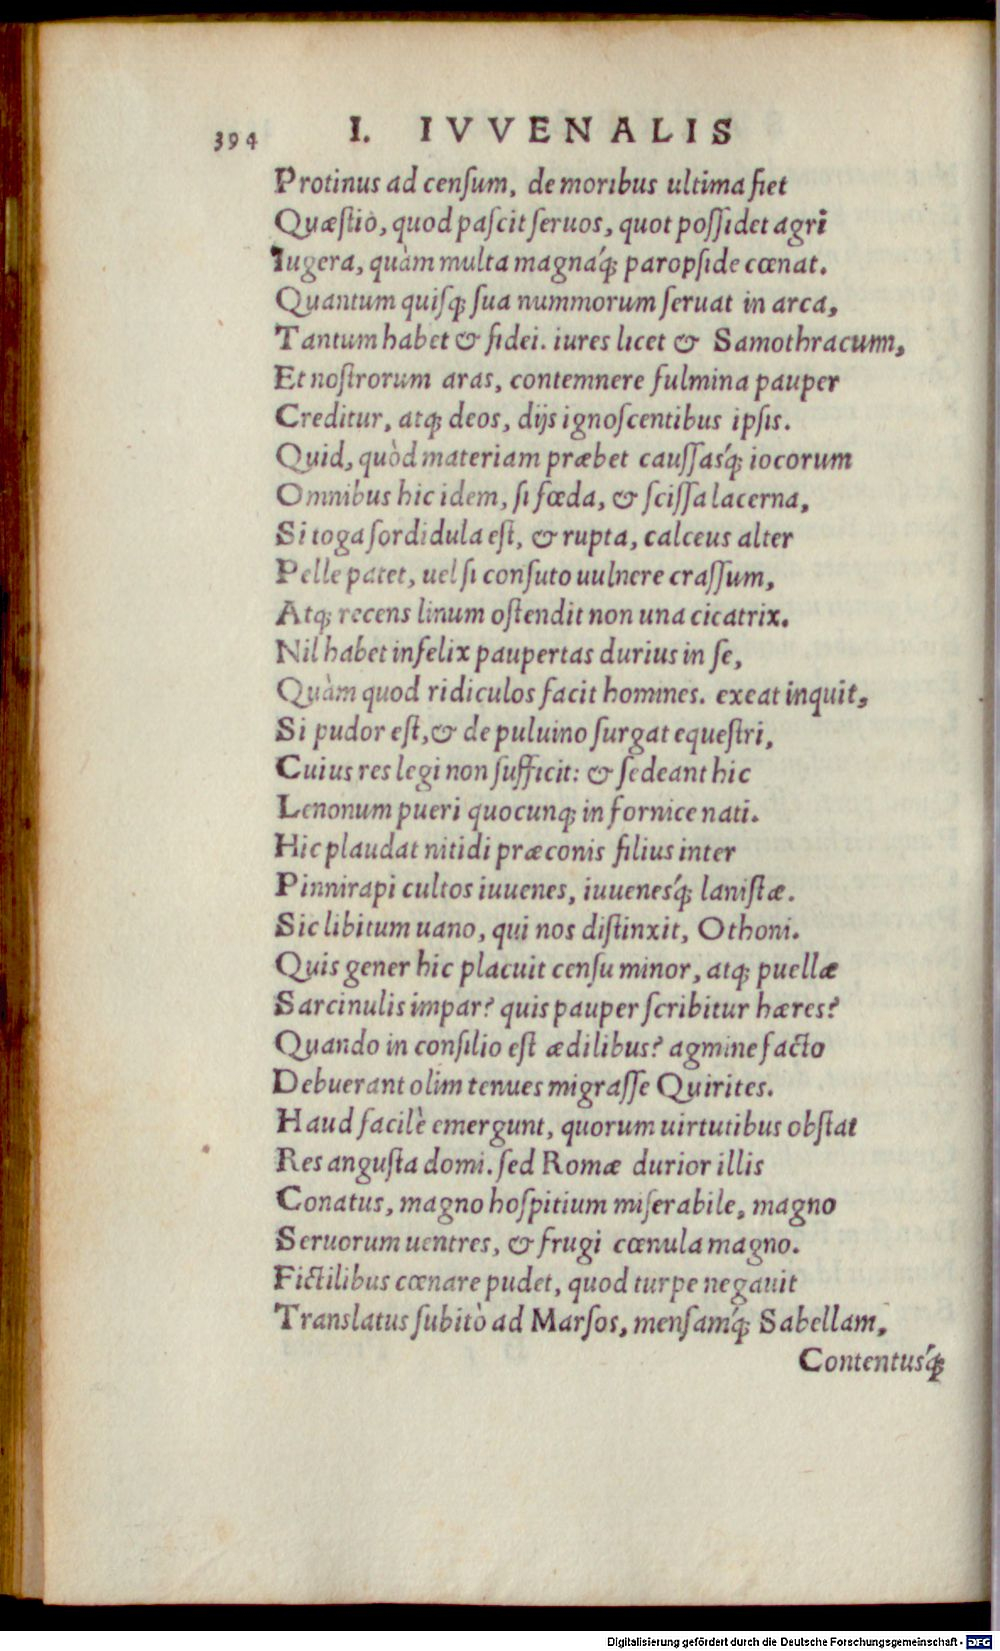 394 I. IVVENALIS
Protinus ad censum, de moribus ultima fiet
Quæstiò, quod pascit seruos, quot possidet agri
Iugera, quàm multa magnáq; paropside cœnat.
Quantum quisq; sua nummorum seruat in arca,
Tantum habet & fidei. iures licet & Samothracum,
Et nostrorum aras, contemnere fulmina pauper
Creditur, atq; deos, dijs ignoscentibus ipsis.
Quid, quòd materiam præbet caussásq; iocorum
Omnibus hic idem, si fœda, & scissa lacerna,
Si toga sordidula est, & rupta, calceus alter
Pelle patet, uel si consuto uulnere crassum,
Atq; recens linum ostendit non una cicatrix.
Nil habet infelix paupertas durius in se,
Quàm quod ridiculos facit homines. exeat inquit,
Si pudor est, & de puluino surgat equestri,
Cuius res legi non sufficit: & sedeant hic
Lenonum pueri quocunq; in fornice nati.
Hic plaudat nitidi præconis filius inter
Pinnirapi cultos iuuenes, iuuenésq; lanistæ.
Sic libitum uano, qui nos distinxit, Othoni.
Quis gener hic placuit censu minor, atq; puellæ
Sarcinulis impar? quis pauper scribitur hæres?
Quando in consilio est ædilibus? agmine facto
Debuerant olim tenues migrasse Quirites.
Haud facilè emergunt, quorum uirtutibus obstat
Res angusta domi. sed Romæ durior illis
Conatus, magno hospitium miserabile, magno
Seruorum uentres, & frugi cœnula magno.
Fictilibus cœnare pudet, quod turpe negauit
Translatus subitò ad Marsos, mensámq; Sabellam,
Contentusq́;
Digitalisierung gefördert durch die Deutsche Forschungsgemeinschaft - DFG